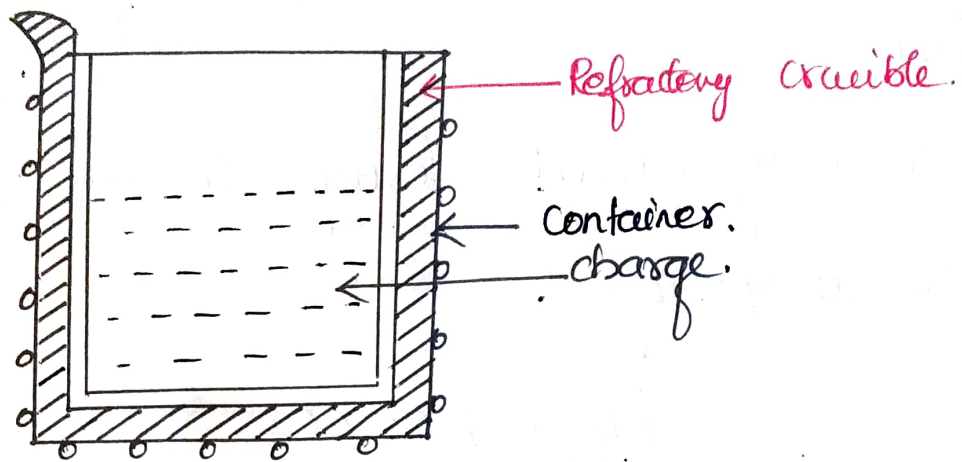 Refractory crucible.
container.
charge.